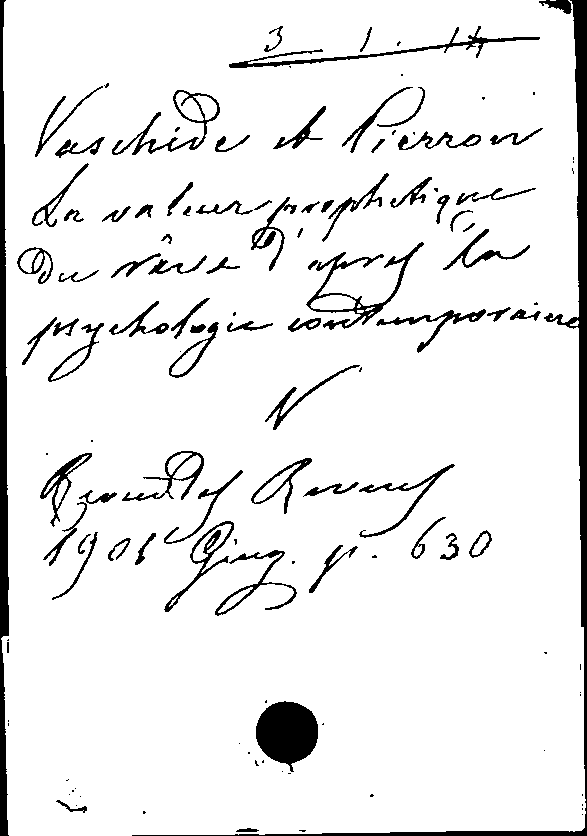 3 - 1 . 14
Vaschide et Pierron
La valeur prophetique
du rêve d'après la
psychologie contemporaine
N
Revue des Revues
1901 Giug. p. 630